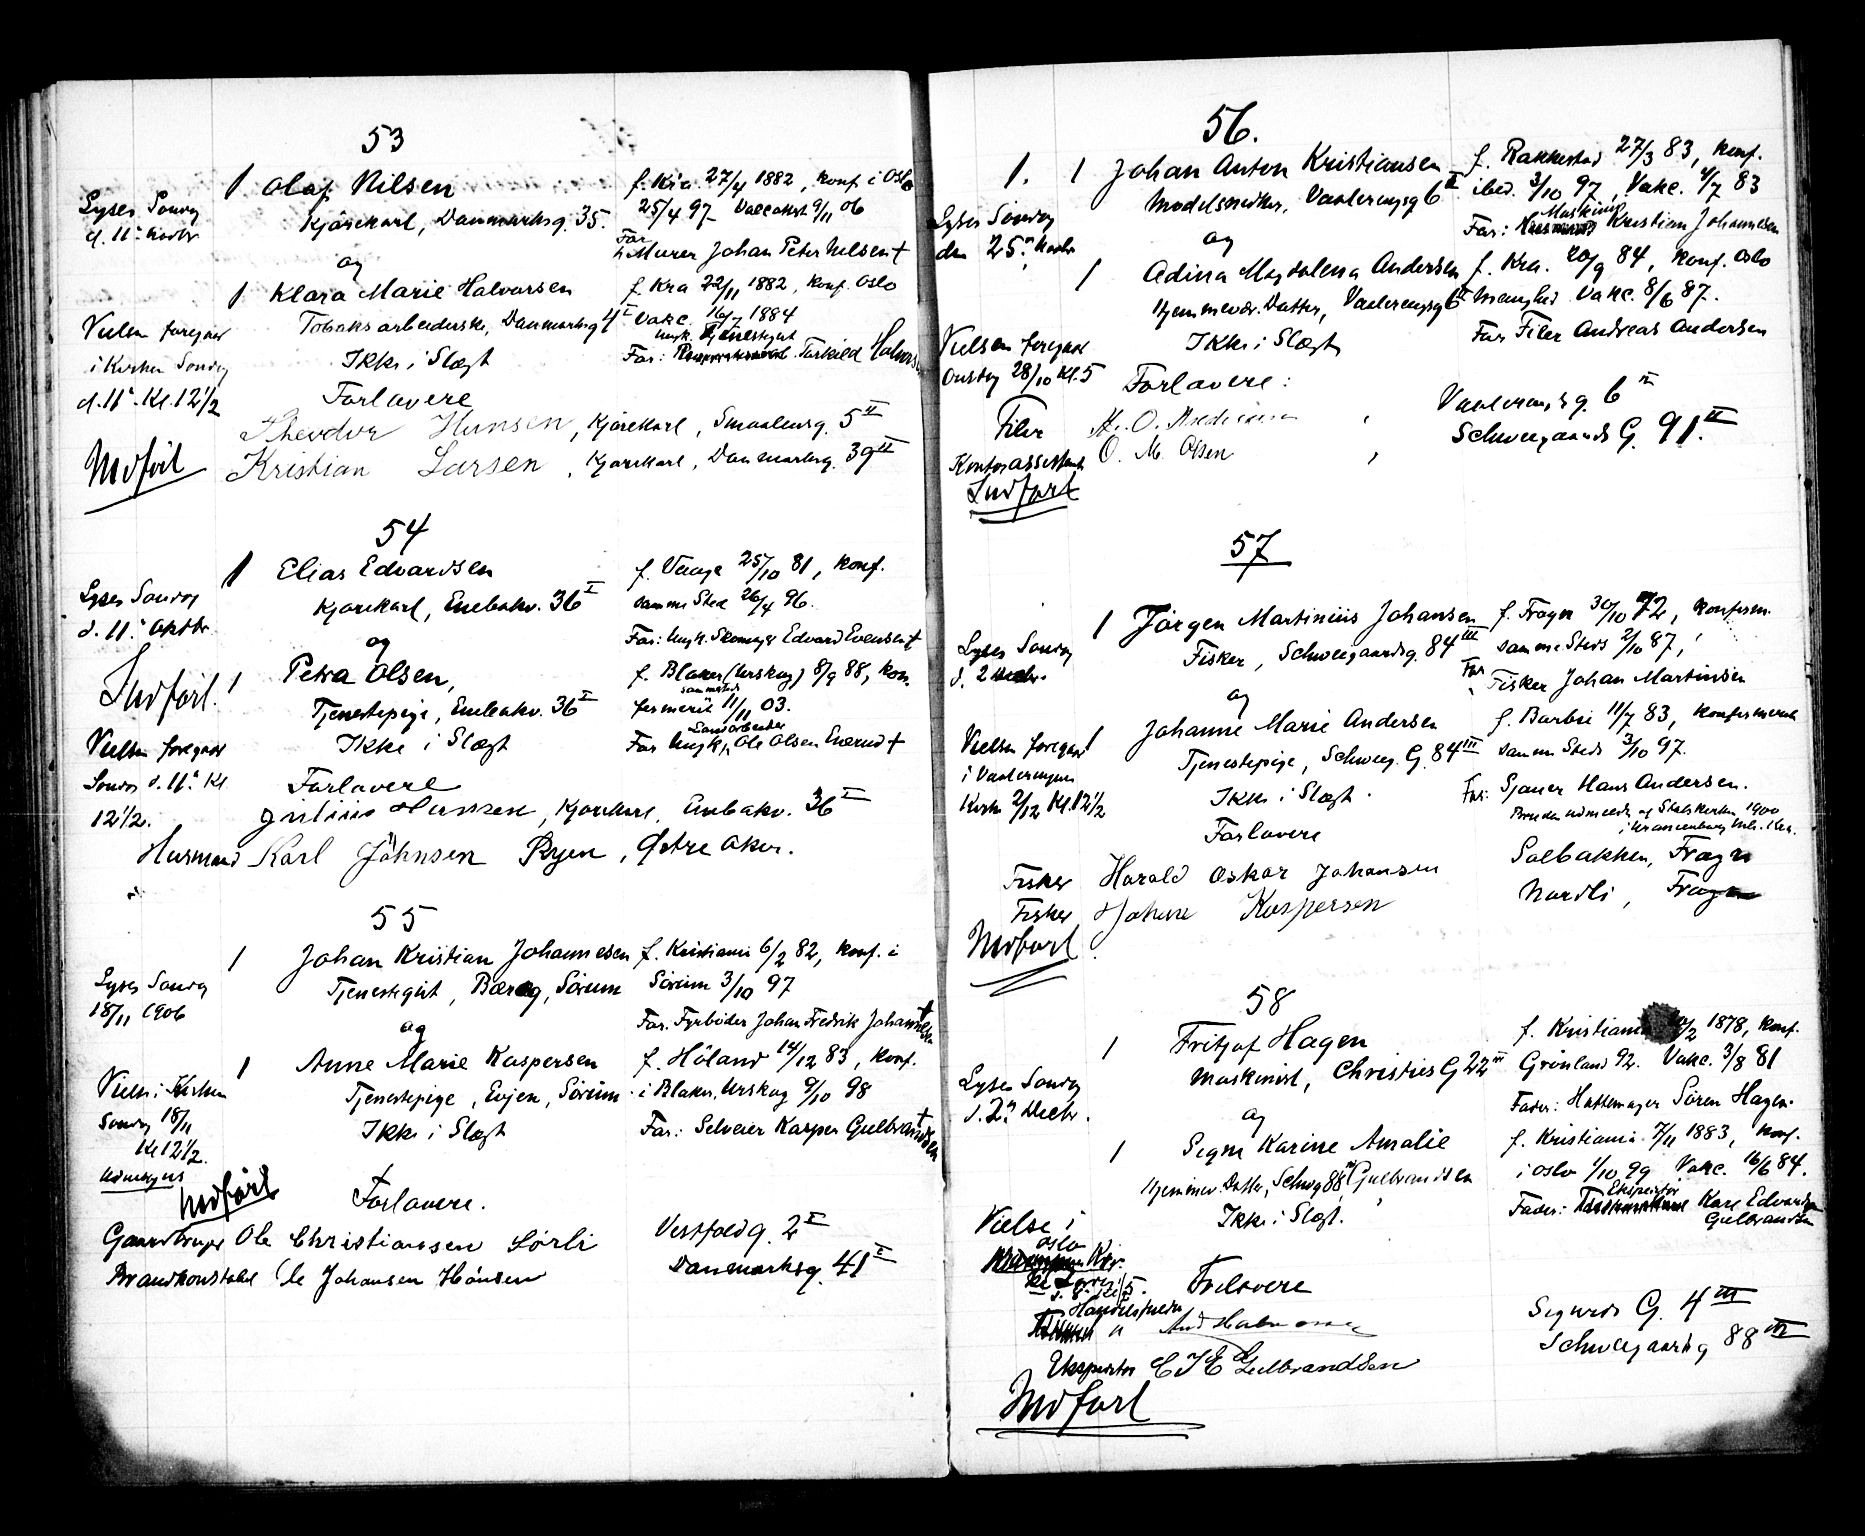 53
Lyses Søndag
d. 11te Novbr
1 Olaf Nilsen
Kjørekarl, Danmarksg. 35.
f. Kra. 27/4 1882, konf i Oslo
25/4 97 Vaccakst 9/11 06
Far
Murer Johan Peter Nilsen †
og
1 Klara Marie Halvorsen
Tobaksarbeiderske, Danmarksg 4 I
f. Kra 22/11 1882, konf. Oslo
Vakc. 16/7 1884
Ungk. Tjenestegut
Far: Torkild Halvorsen
Vielsen foregaar
i Kirken Søndag
d. 11te Kl. 12 1/2
Ikke i Slægt
Forlovere
Theodor Hansen, Kjørekarl, Smaalensg. 5 II
Kristian Larsen, Kjørekarl, Danmarksg. 39 II
Indført
54
Lyses Søndag
d. 11te Oktbr.
1 Elias Edvardsen
Kjørekarl, Enebakv. 36 I
f. Vaage 25/10 81, konf.
samme Sted 26/4 96.
Far: Ungk. Skomager Edvard Evensen †
og
Indført!
1 Petra Olsen,
Tjenestepige, Enebakv. 36 I
f. Blaker (Urskog) 8/9 88, kon-
sammesteds
fermeret 11/11 03.
Landarbeider
Far Ungk, Ole Olsen Enerud †
Vielsen foregaar
Søndag d. 11te Kl.
12 1/2.
Ikke i Slægt
Forlovere
Julius Hansen, Kjørekarl, Enebakv. 36 I
Husmand Karl Johnsen Ryen, Østre Aker.
55
Lyses Søndag
18/11 1906
1 Johan Kristian Johannesen
Tjenestegut, Sørum
f. Kristiania 6/2 82, konf. i
Sørum 3/10 97
Far: Fyrbøder Johan Fredrik Johannesen †
og
1 Anne Marie Kaspersen
Tjenestepige, Evjen, Sørum
f. Høland 14/12 83, konf.
i Blaker, Urskog 9/10 98
Far: Selveier Kasper Gulbrandsen †
Viels. i Kirken
Søndag 18/11
Kl 12 1/2.
Ikke i Slægt
Indført
Forlovere.
Gaardbruger Ole Christiansen Sørli Vestfoldg. 2 I
Brandkonstabel Ole Johansen Hansen Danmarksg. 41 I
56.
1. 1 Johan Anton Kristiansen
Modelsnedker, Vaalerengsg 6 II
f. Rakkestad 27/3 83, konf.
ibed. 3/10 97, Vakc. 4/7 83
Maskinist
Far: Kristian Johannesen
Lyses Søndag
den 25de Novbr
og
1 Adina Magdalena Andersen
Hjemmevær. Datter, Vaalerengsg 6 II
f. Kra. 20/9 84, konf. Oslo
Menighed Vakc. 8/6 87.
Far Filer Andreas Andersen
Vielsen foregaar
Onsdag 28/10 Kl. 5
Ikke i Slægt
Forlovere:
Filer A. O. Andersen, Vaalerengsg. 6 II
Kontorassistent O. M. Olsen, Schweigaards G. 91. II
Indført
57
1 Jørgen Martinius Johansen
Fisker, Schweigaardsg. 84 III
f. Frogn 30/10 72, konferm.
samme Steds 2/10 87,
Far
Fisker Johan Martinsen
Lyses Søndag
d. 2 Decbr.
og
1 Johanne Marie Andersen
Tjenestepige, Schweig. G. 84 III
f. Borbri 11/7 83, konfermeret
samme Steds 3/10 97.
Far: Sjauer Hans Andersen.
Bruden udmeldt af Statskirken 1900
Vielsen foregaar
i Vaalerengen
Kirke 2/12 Kl. 12 1/2
Ikke i Slægt.
Forlovere
Fisker Harald Oskar Johansen Solbakken, Frogn
Fisker Johan Kaspersen Nordli, Frogn
Indført
58
1 Fritjof Hagen
Maskinist, Christies G 22 III
f. Kristiania /2 1878, konf.
Grønland 92. Vakc. 3/8 81
Fader: Hattemager Søren Hagen.
Lyses Søndag
d. 2den Decbr.
og
1 Signe Karine Amalie
Hjemmev. Datter, Schwg 88 III Gulbrandsen
f. Kristiania 7/11 1883, konf.
i Oslo 1/10 99 Vakc. 16/6 84.
Ekspeditør
Fader: Karl Edvard
Gulbrandsen
Ikke i Slægt.
Vielse i
Oslo
Kir.
Forlovere
Sigurds G. 4 III
Ekspeditør C J E Gulbrandsen Schweigaardsg 88 III
Indført